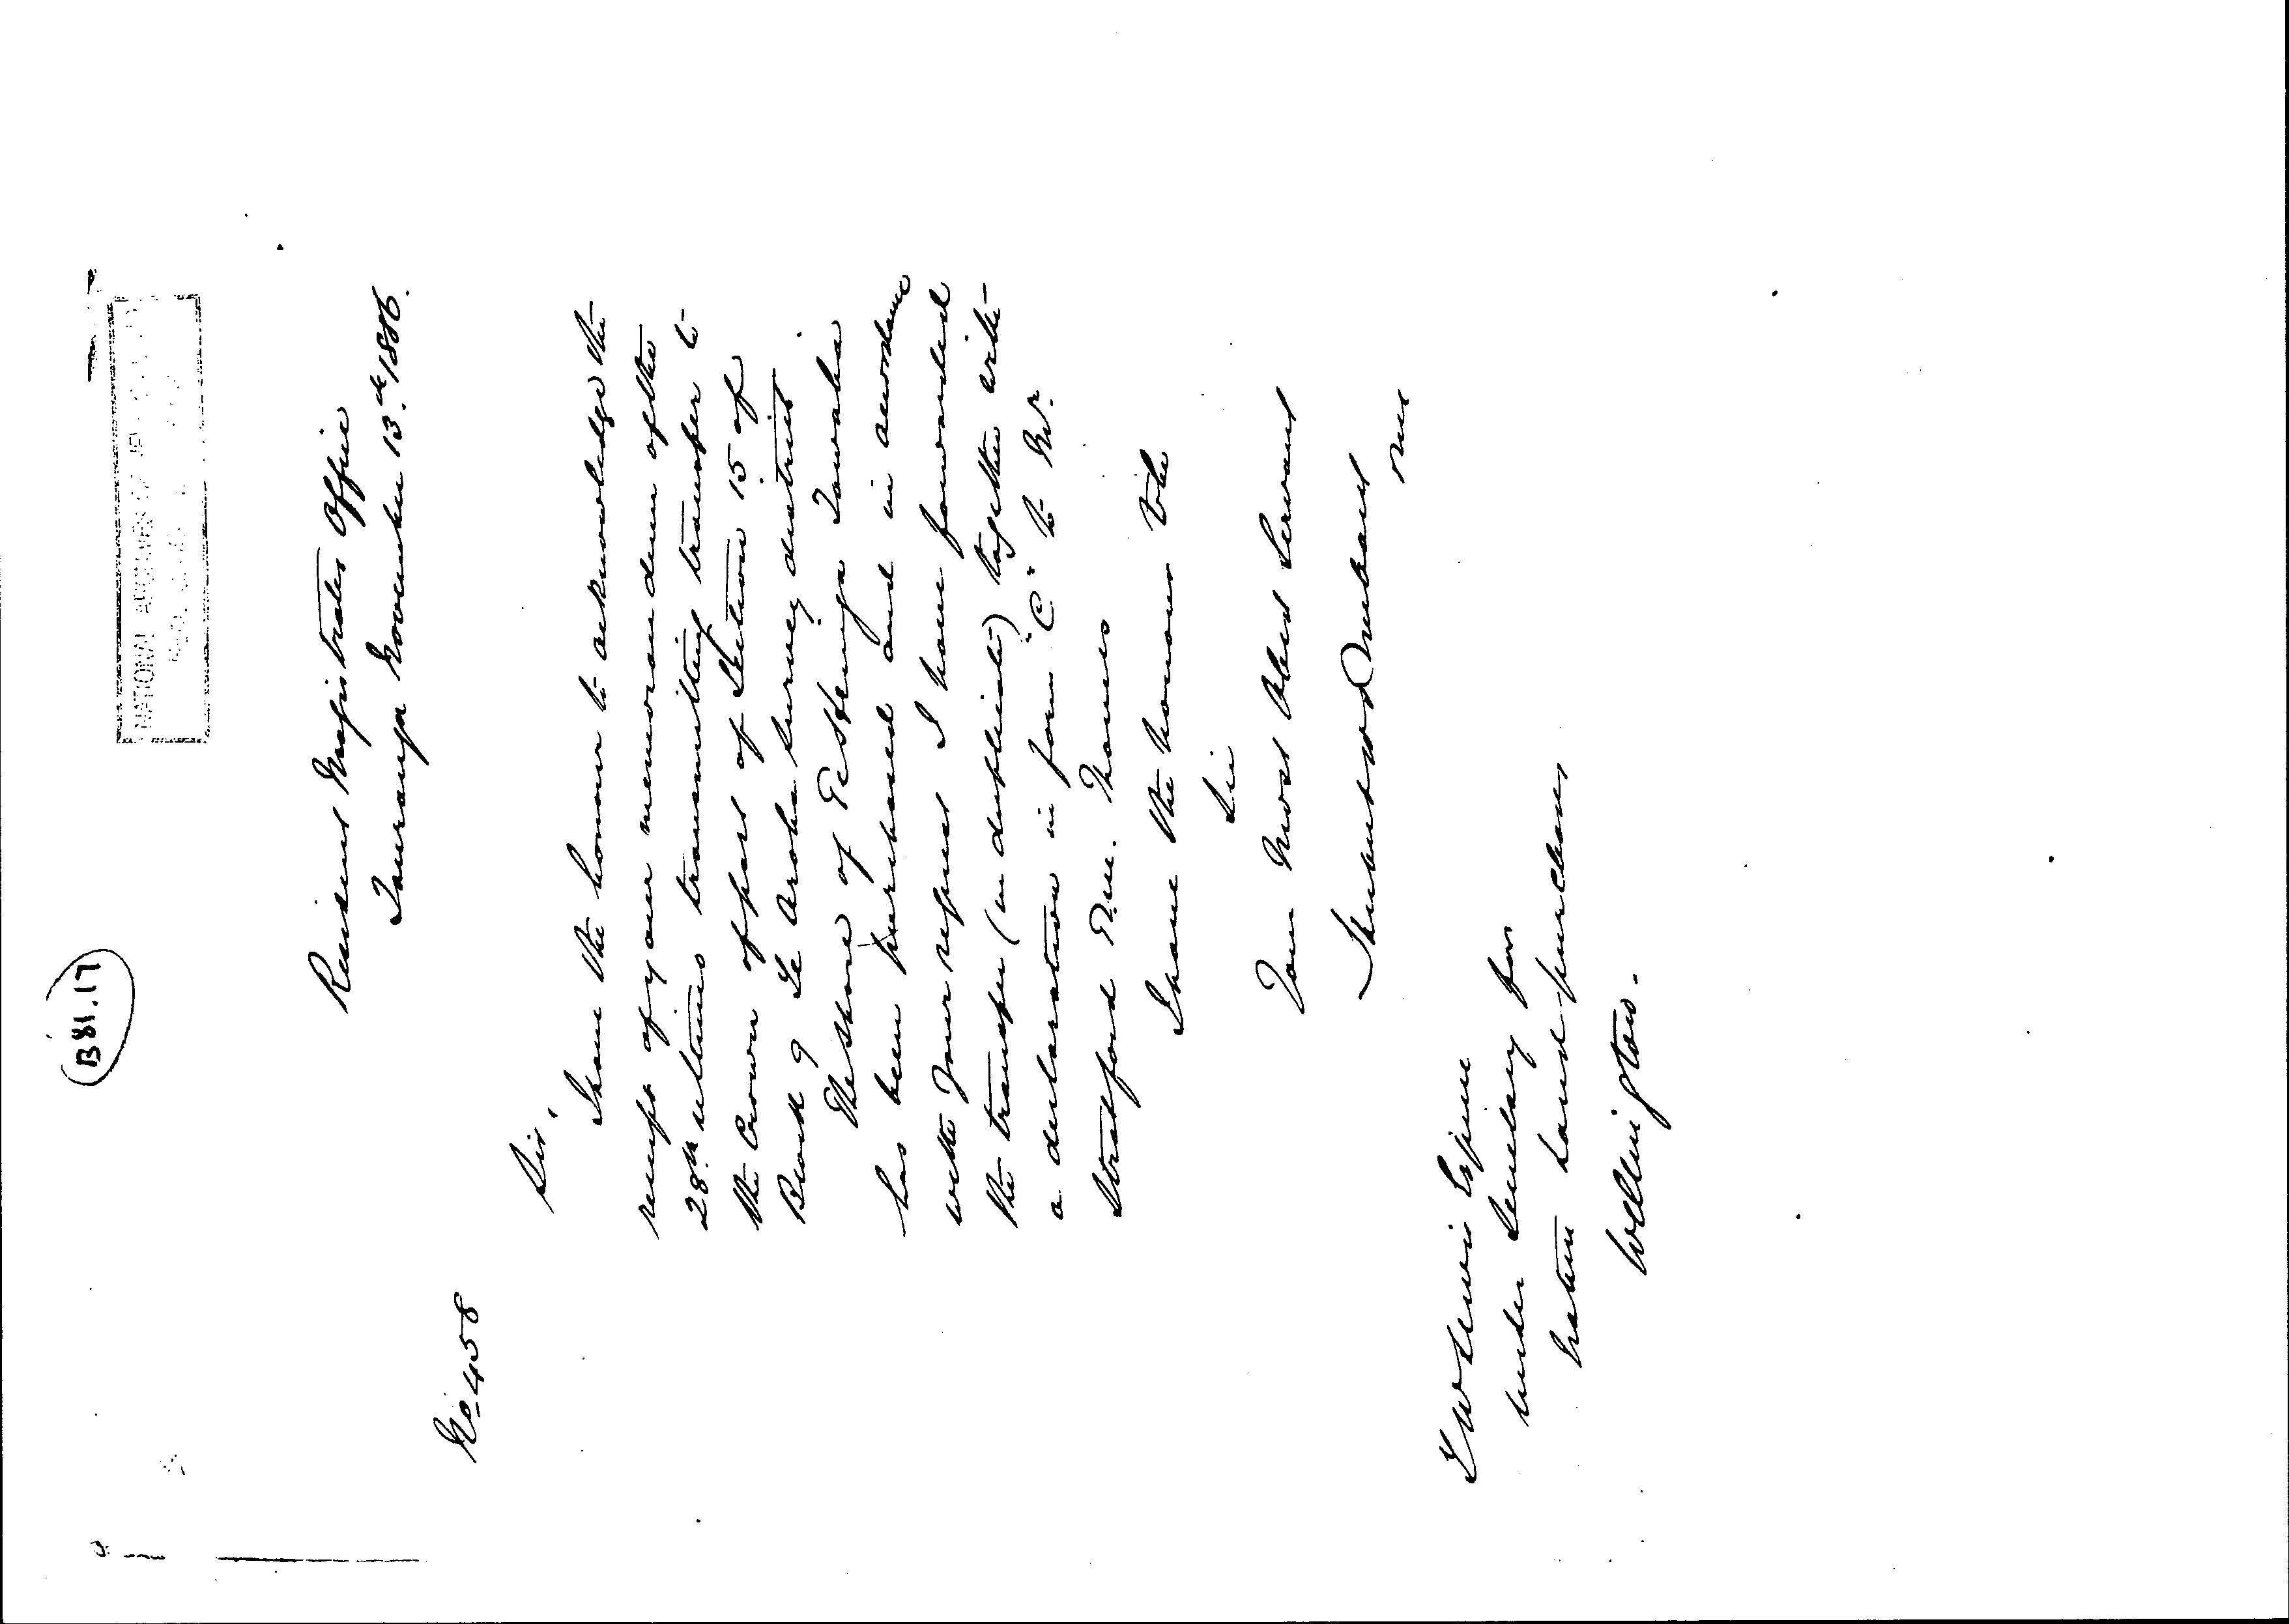 B81.17
NATIONAL ARCHIVES OF
Resident Magistrates Office
Tauranga November 13th/1886.
No 458
Sir,
I have the honour to acknowledge the
receipt of your memorandum of the
28th ultimo transmitting transfer to
the Crown of part of Section 15 of
Block 9 Te Aroha survey district
The share of Te Hunga Tawaha
has been purchased and in accordance
with your request I have forwarded
the transfer (in duplicate) together with
a declaration in form "C" to Mr.
Stratford R.M. Thames
I have the honour to be
Sir
Your Most Obed Servant
Herbert W Brabant
RM
T W Lewis Esquire
Under Secretary for
Native Land purchases
Wellington.